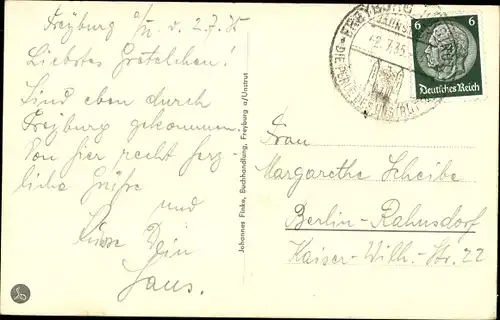 Freyburg a/U. d. 2.7.35
Liebstes Gretelchen!
Sind eben durch
Freyburg gekommen.
Von hier recht herz-
liche Grüße
und
Küsse Dein
Hans.
Johannes Finke, Buchhandlung, Freyburg a/Unstrut
FREYBURG
2.7.35
6 6
Deutsches Reich
Frau
Margarethe Scheibe
Berlin-Rahnsdorf
Kaiser-Wilh.-Str. 22